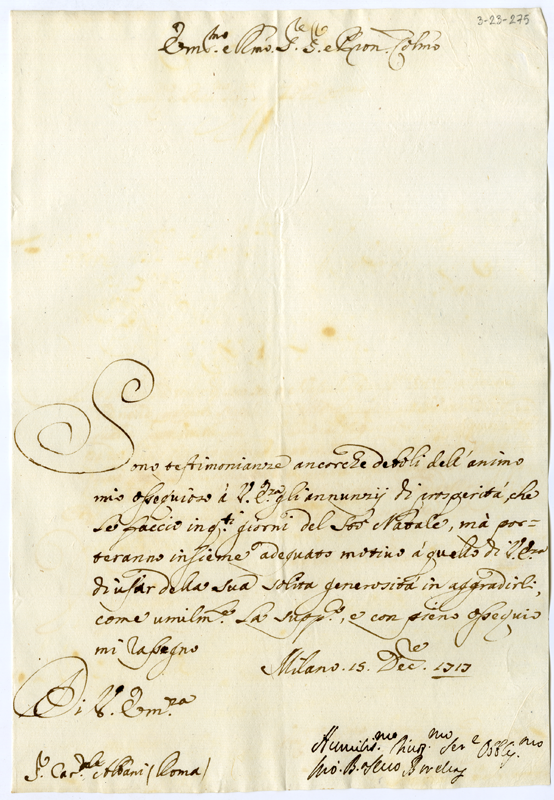 3-23-275
Em.mo e Rmo. S.re S. e Pron. Colmo
Sono testimonianze ancorche deboli dell'animo
mio ossequioso à V. Em.za gli annunzij di prosperità, che
le faccio in q.ti giorni del Sto Natale, mà por=
teranno insieme adequato motivo à quello di V. Em.za
di usar della sua solita generosità in aggradirli,
come umilm.e La supp.o, e con pieno ossequio
mi rassegno
Milano 15. Dec.re 1717
Di V. Em.za
Humilis.mo Ser.e Obblig.mo
Gio. B.
S. Car.le Albani (Roma)